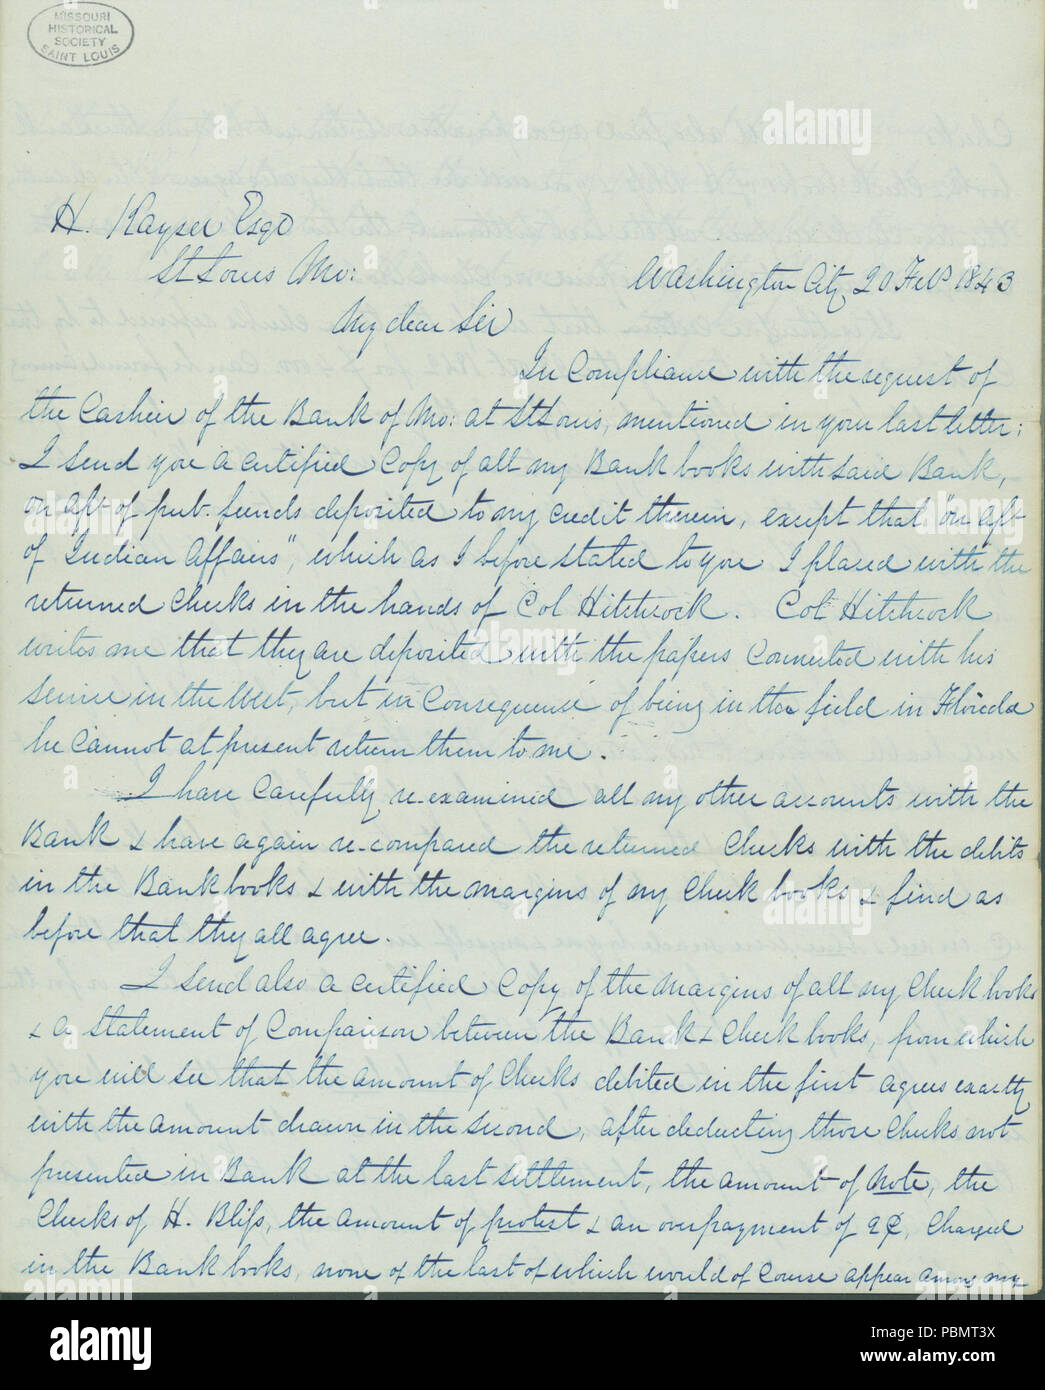 MISSOURI
HISTORICAL
SOCIETY
SAINT LOUIS
H. Kayser Esqr
St Louis Mo:
Washington City 20 Feb 1843
My dear Sir
In Compliance with the request of
the Cashier of the Bank of Mo: at St Louis, mentioned in your last letter;
I send you a certified Copy of all my Bank books with said Bank,
on a/c of pub. funds deposited to my credit therein, except that "on a/c
of Indian Affairs", which as I before stated to you I placed with the
returned checks in the hands of Col Hitchcock. Col Hitchcock
writes me that they are deposited with the papers Connected with his
service in the West, but in Consequence of being in the field in Florida
he Cannot at present return them to me.
I have Carefully re-examined all my other accounts with the
Bank & have again re-compared the returned Checks with the debits
in the Bank books & with the margins of my Check books & find as
before that they all agree.
I send also a certified Copy of the margins of all my Check books
& a Statement of Comparison between the Bank & Check books, from which
you will see that the amount of Checks debited in the first agrees exactly
with the amount drawn in the second, after deducting those Checks not
presented in Bank at the last settlement, the amount of Note, the
Checks of H. Bliss, the amount of protest & an overpayment of 2¢, Charged
in the Bank books, none of the last of which would of Course appear among my
alamy
alamy
Image ID: PBMT3X
www.alamy.com